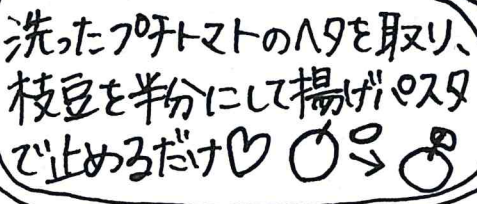 洗ったプチトマトのヘタを取り、
枝豆を半分にして揚げパスタ
で止めるだけ♡